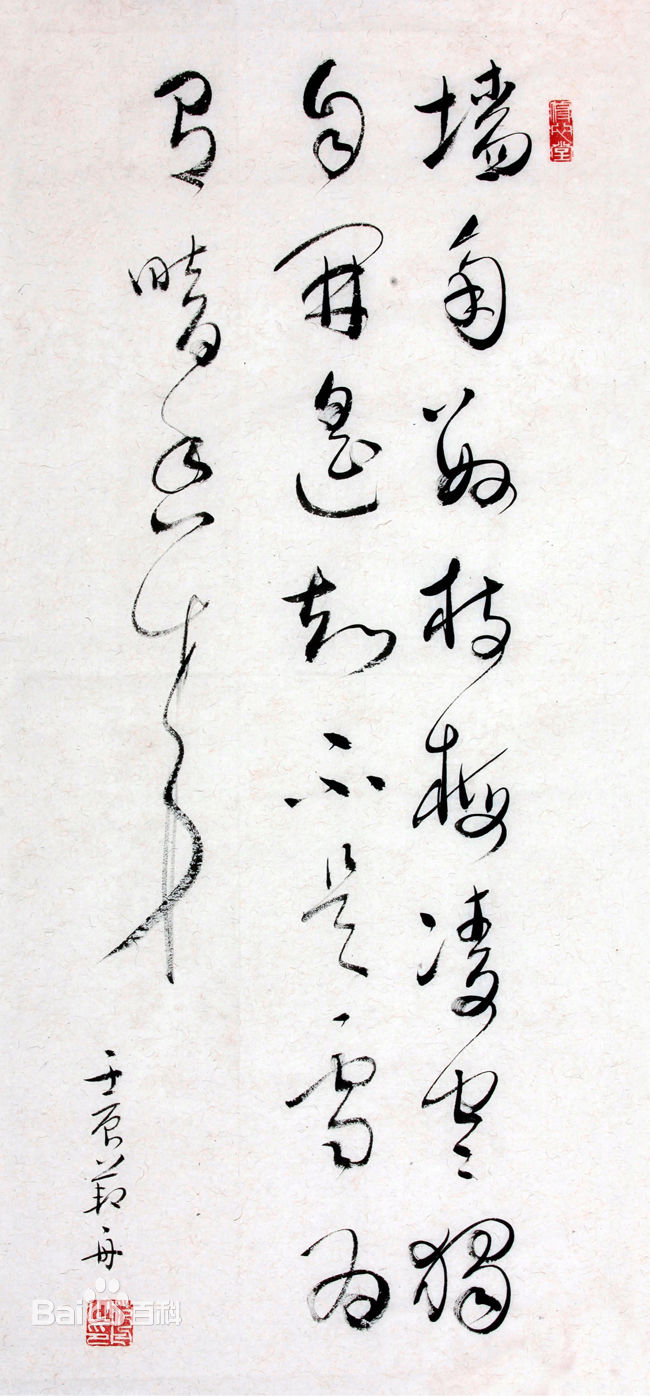 墙角数枝梅凌寒独
自开遥知不是雪为
有暗香来
壬辰
Bai 百科